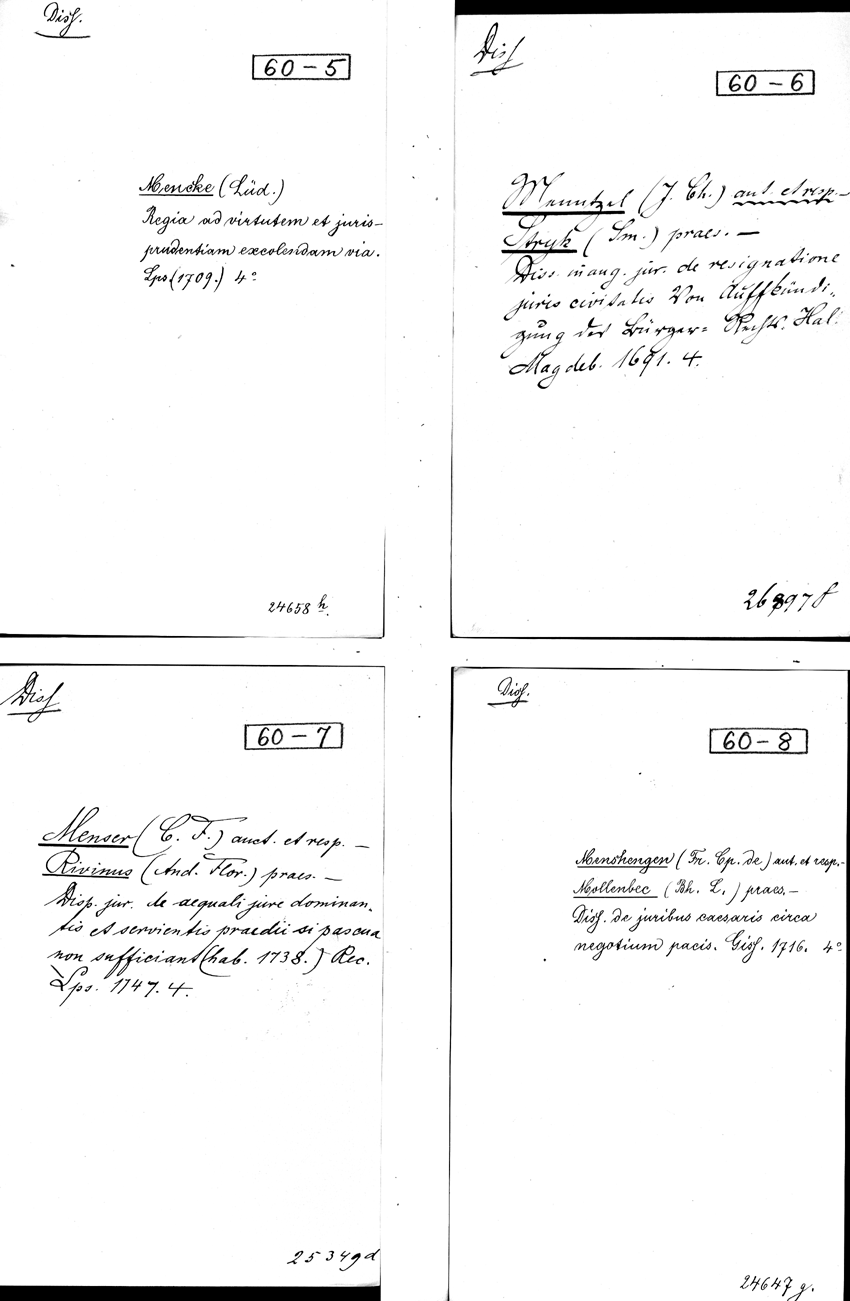 Diss.
60-5
Mencke (Lüd.)
Regia ad virtutem et juris-
prudentiam excolendam via.
Lps (1709.) 4°
24658 h.
Diss
60-6
Menntzel (J. Ch.) aut. et resp.-
Stryk (Sm.) praes. -
Diss. inaug. jur. de resignatione
juris civitatis Von Auffkündi-
gung des Bürger= Rechts. Hal.
Magdeb. 1691. 4.
26897 f
Diss
60-7
Menser (C. F.) auct. et resp. -
Rivinus (And. Flor.) praes. -
Disp. jur. de aequali jure dominan-
tis et servientis praedii si pascua
non sufficiant (hab. 1738.) Rec.
Lps. 1747. 4.
25349 d
Diss.
60-8
Menshengen (Fr. Cp. de) aut. et resp.-
Mollenbec (Bh. L.) praes. -
Diss. de juribus caesaris circa
negotium pacis. Giss. 1716. 4°
24647 g.